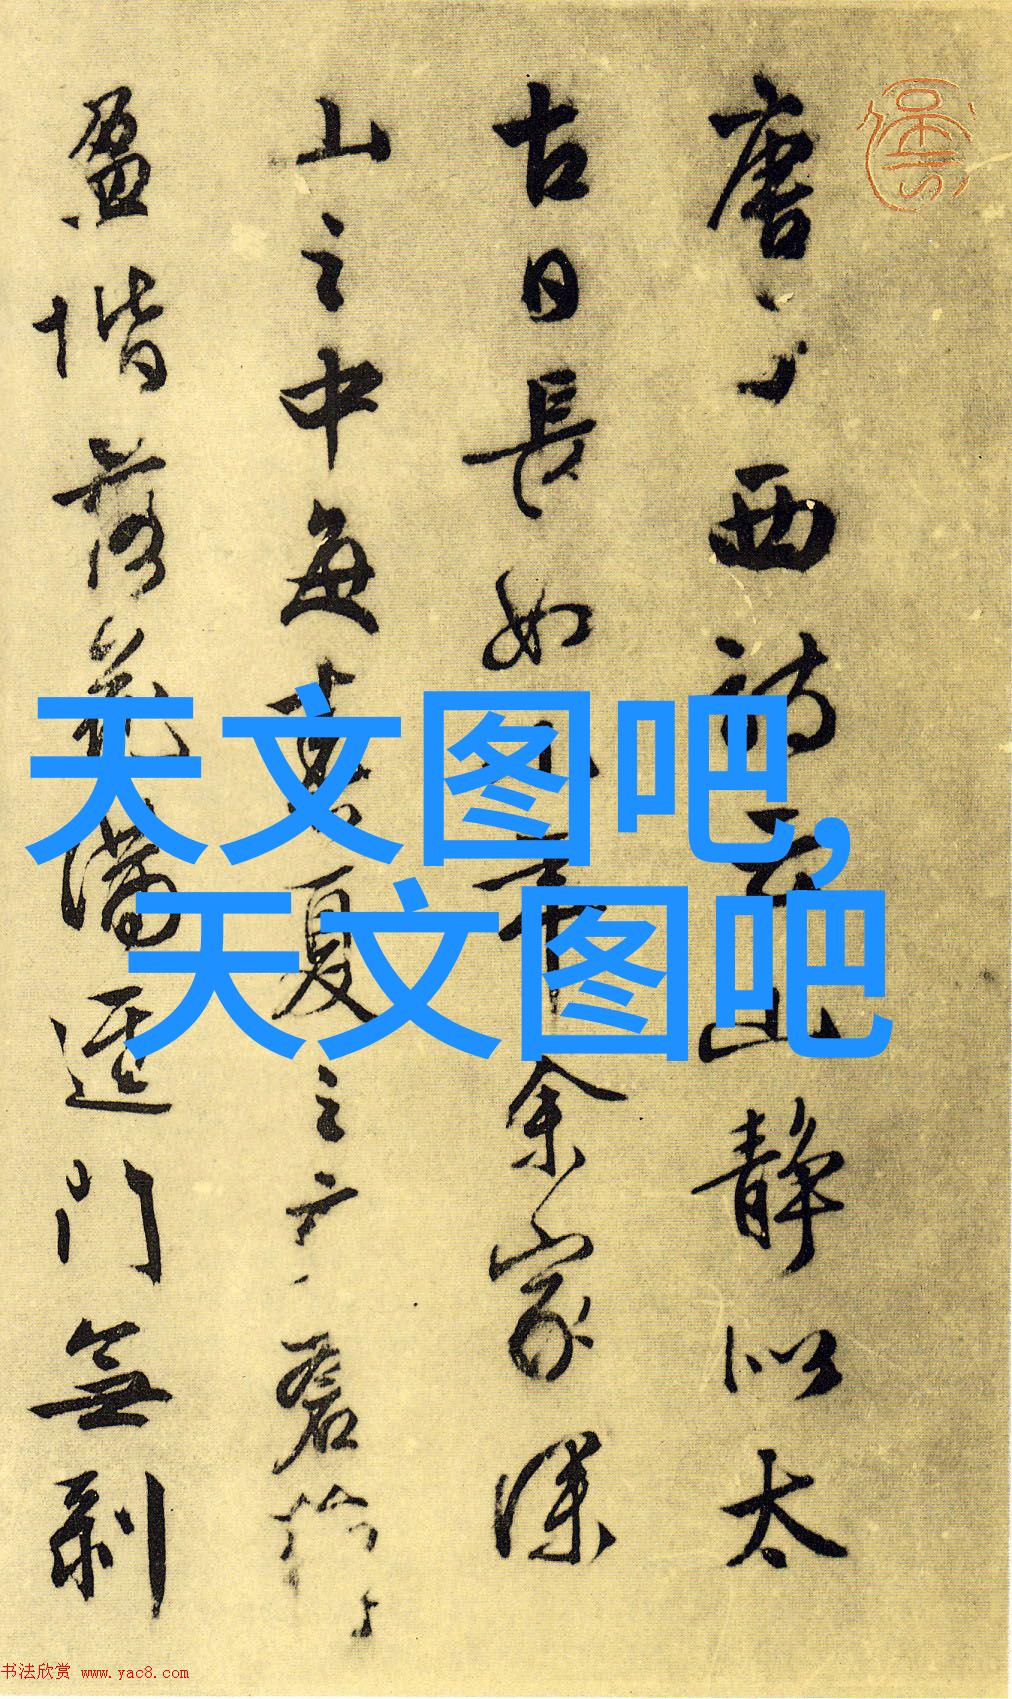 唐子西詩云山静似太
古日長如小年余家深
山之中每春夏之交蒼蘚
盈堦落花滿逕門無剥
天文图吧,
天文图吧
书法欣赏 www.yac8.com